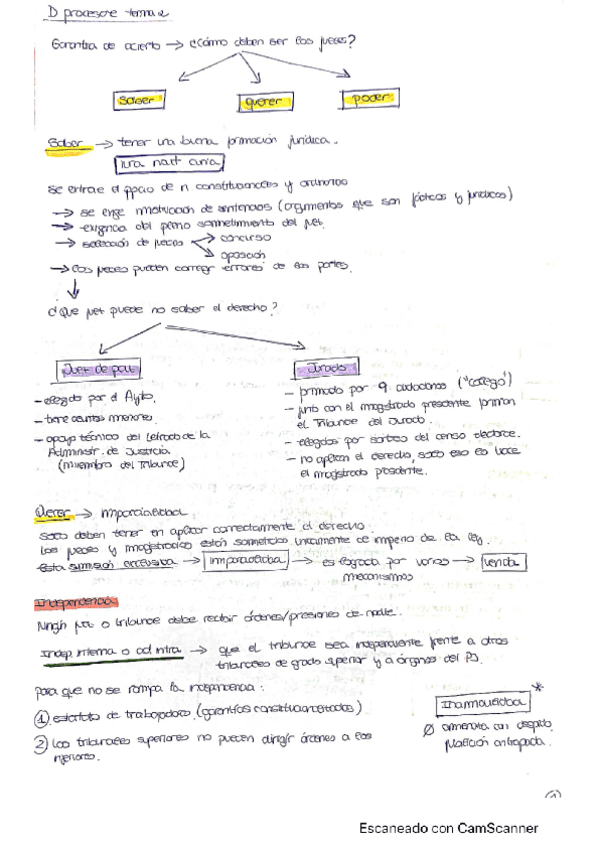 D procesore tema 2
Garantía de acierto → ¿Cómo deben ser los jueces?
Saber querer poder
Saber → tener una buena formación jurídica.
iura novit curia
se extrae el ppcio de constitucionales y ordinarios
→ se exige motivación de sentencias (argumentos que son fácticos y jurídicos)
→ exigencia del pleno sometimiento del juez.
→ selección de jueces concurso
oposición
→ Los jueces pueden corregir errores de las partes.
¿Qué juez puede no saber el derecho?
Juez de paz Jurado
- elegido por el Ayto.
- tiene asuntos menores.
- apoyo técnico del Letrado de la
Administr. de Justicia
(miembro del tribunal)
- formado por 9 ciudadanos ("colegio")
- junto con el magistrado presidente forman
el Tribunal del Jurado.
- elegidos por sorteo del censo electoral.
- no aplican el derecho, solo eso es lo hace
el magistrado presidente.
Querer → imparcialidad.
Solo deben tener en aplicar correctamente el derecho.
Los jueces y magistrados están sometidos únicamente al imperio de la ley.
Esta sumisión exclusiva → imparcialidad → es lograda por varios → venda
mecanismos
Independencia
Ningún juez o tribunal debe recibir órdenes/presiones de nadie.
Indep interna o ad intra → que el tribunal sea independiente frente a otros
tribunales de grado superior y a órganos del PJ.
para que no se rompa la independencia:
① estatuto de trabajadores (garantías constitucionalizadas)
② Los tribunales superiores no pueden dirigir órdenes a los
inferiores.
Inamovilidad *
Ø amenaza con despido,
jubilación anticipada.
①
Escaneado con CamScanner